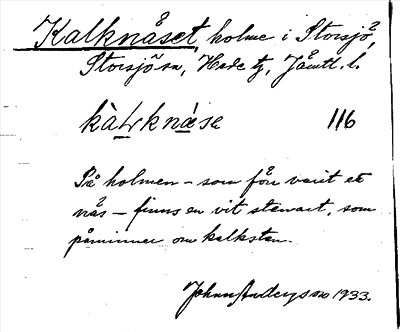 Kalknåset, holme i Storsjö,
Storsjö sn, Hede tg, Jämtl. l.
kàLknæse 116
På holmen - som förr varit ett
näs - finns en vit stenart, som
påminner om kalksten.
Johan Andersson 1933.